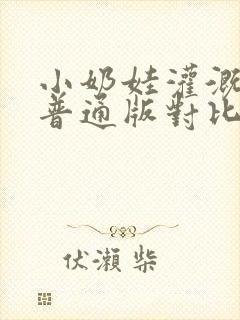 小奶娃灌溉
普通版對比
伏瀨柴